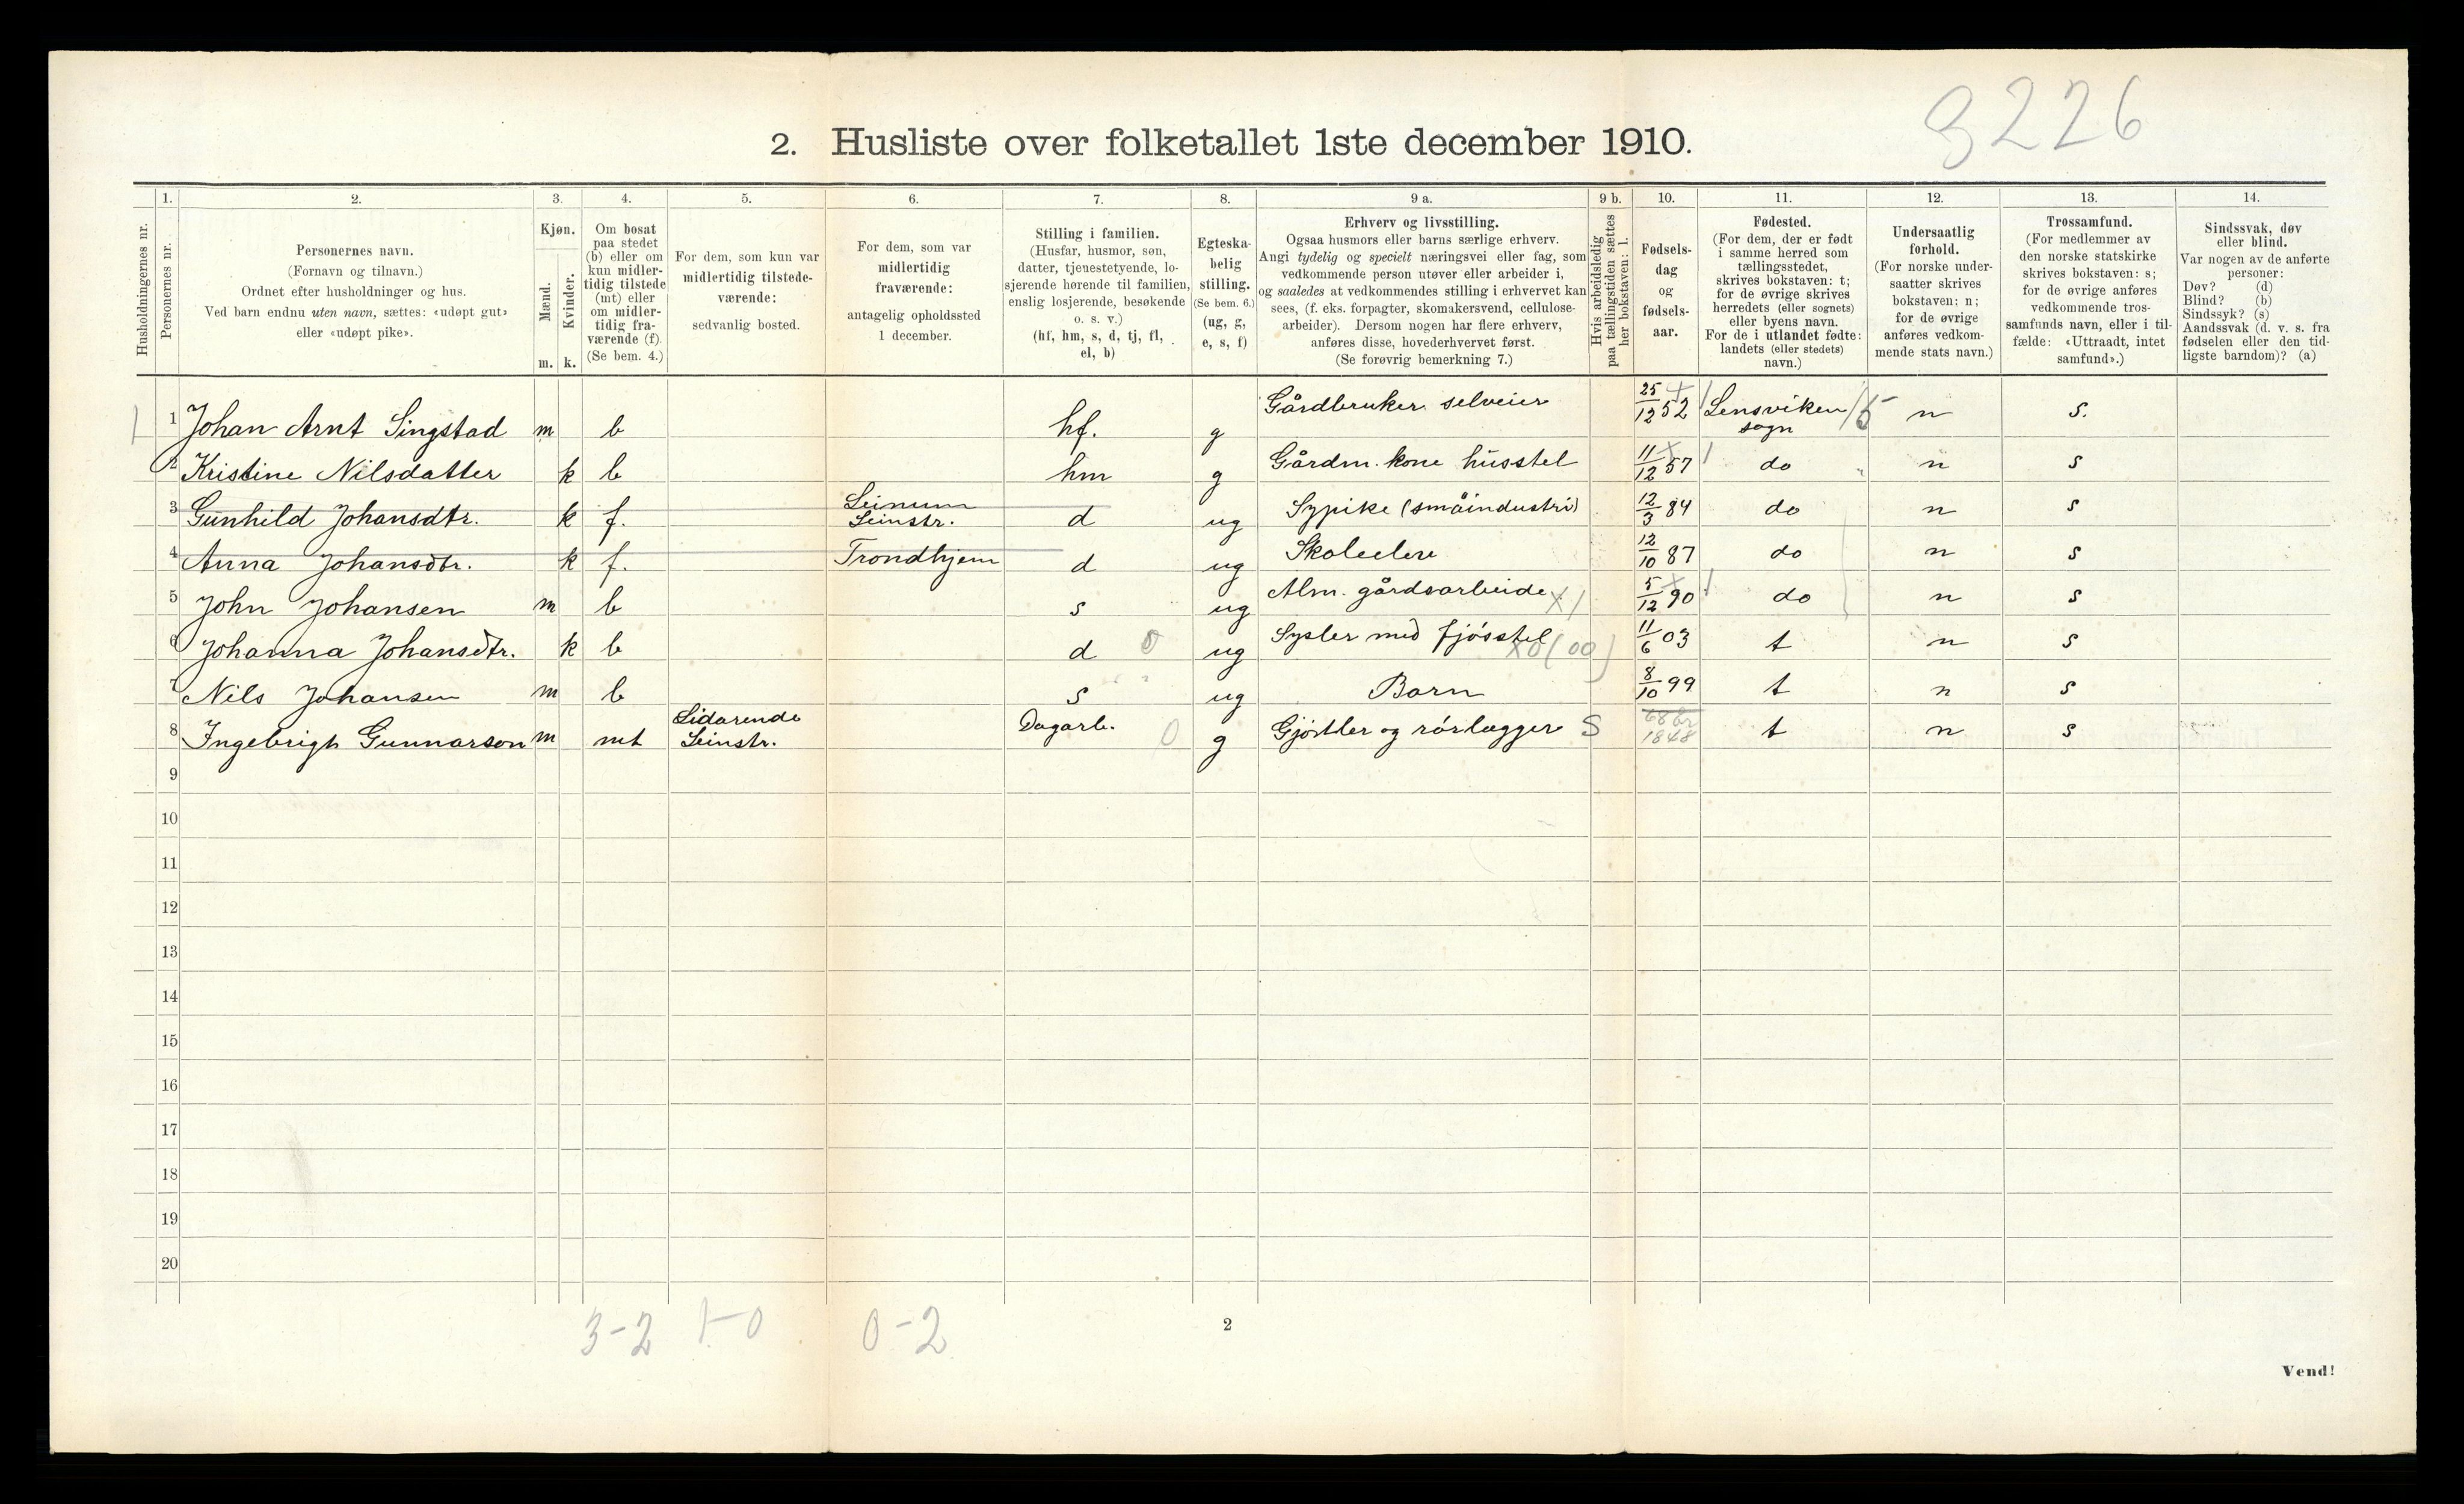 3226
2. Husliste over folketallet 1ste december 1910.
Husholdningernes nr.
1.
Personernes nr.
2.
Personernes navn.
(Fornavn og tilnavn.)
Ordnet efter husholdninger og hus.
Ved barn endnu uten navn, sættes: «udøpt gut»
eller «udøpt pike».
3.
Kjøn.
Mænd.
Kvinder.
m. k.
4.
Om bosat
paa stedet
(b) eller om
kun midler-
tidig tilstede
(mt) eller
om midler-
tidig fra-
værende (f).
(Se bem. 4.)
5.
For dem, som kun var
midlertidig tilstede-
værende:
sedvanlig bosted.
6.
For dem, som var
midlertidig
fraværende:
antagelig opholdssted
1 december.
7.
Stilling i familien.
(Husfar, husmor, søn,
datter, tjenestetyende, lo-
sjerende hørende til familien,
enslig losjerende, besøkende
o. s. v.)
(hf, hm, s, d, tj, fl,
el, b)
8.
Egteska-
belig
stilling.
(Se bem. 6.)
(ug, g,
e, s, f)
9 a.
Erhverv og livsstilling.
Ogsaa husmors eller barns særlige erhverv.
Angi tydelig og specielt næringsvei eller fag, som
vedkommende person utøver eller arbeider i,
og saaledes at vedkommendes stilling i erhvervet kan
sees, (f. eks. forpagter, skomakersvend, cellulose-
arbeider). Dersom nogen har flere erhverv,
anføres disse, hovederhvervet først.
(Se forøvrig bemerkning 7.)
9 b.
Hvis arbeidsledig
paa tællingstiden sættes
her bokstaven: l.
10.
Fødsels-
dag
og
fødsels-
aar.
11.
Fødested.
(For dem, der er født
i samme herred som
tællingsstedet,
skrives bokstaven: t;
for de øvrige skrives
herredets (eller sognets)
eller byens navn.
For de i utlandet fødte:
landets (eller stedets)
navn.)
12.
Undersaatlig
forhold.
(For norske under-
saatter skrives
bokstaven: n;
for de øvrige
anføres vedkom-
mende stats navn.)
13.
Trossamfund.
(For medlemmer av
den norske statskirke
skrives bokstaven: s;
for de øvrige anføres
vedkommende tros-
samfunds navn, eller i til-
fælde: «Uttraadt, intet
samfund».)
14.
Sindssvak, døv
eller blind.
Var nogen av de anførte
personer:
Døv? (d)
Blind? (b)
Sindssyk? (s)
Aandssvak (d. v. s. fra
fødselen eller den tid-
ligste barndom)? (a)
1 1 Johan Arnt Singstad m b hf. g Gårdbruker selveier 25/12 52 Lensviken sogn 5 n s.
2 Kristine Nilsdatter k b hm g Gårdm. kone husstel 11/12 57 do n s
3 Gunhild Johansdtr. k f. Leinum Leinstr. d ug Sypike (småindustri) 12/3 84 do n s
4 Anna Johansdtr. k f. Trondhjem d ug Skoleelev 12/10 87 do n s
5 John Johansen m b s ug Alm. gårdsarbeide X1 5/12 90 do n s
6 Johanna Johansdtr. k b d 0 ug Sysler med fjósstel X0(00) 11/6 03 t n s
7 Nils Johansen m b s ug Barn 8/10 99 t n s
8 Ingebrigt Gunnarson m mt Lidarende Leinstr. Dagarb. 0 g Gjørtler og rórlægger S 1848 t n s
9
10
11
12
13
14
15
16
17
18
19
20
3-2 1-0 0-2
2
Vend!